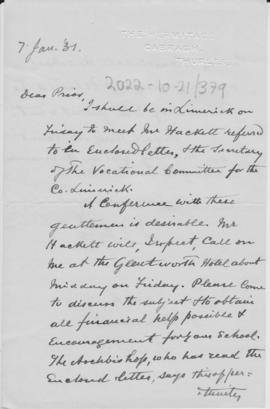 THE HERMITAGE,
CABRAGH,
THURLES.
7 Jan. '31.
2022-10-21/379
Dear Prior,
I shall be in Limerick on
Friday to meet Mr Hackett referred
to in Enclosed letter, & the Secretary
of The Vocational Committee for the
Co. Limerick.
A Conference with these
gentlemen is desirable. Mr
Hackett will, I expect, Call on
me at the Glentworth Hotel about
Midday on Friday. Please come
to discuss the subject & to obtain
all financial help possible &
Encouragement for your School.
The Archbishop, who has read the
Enclosed letter, says this oppor=
tunity